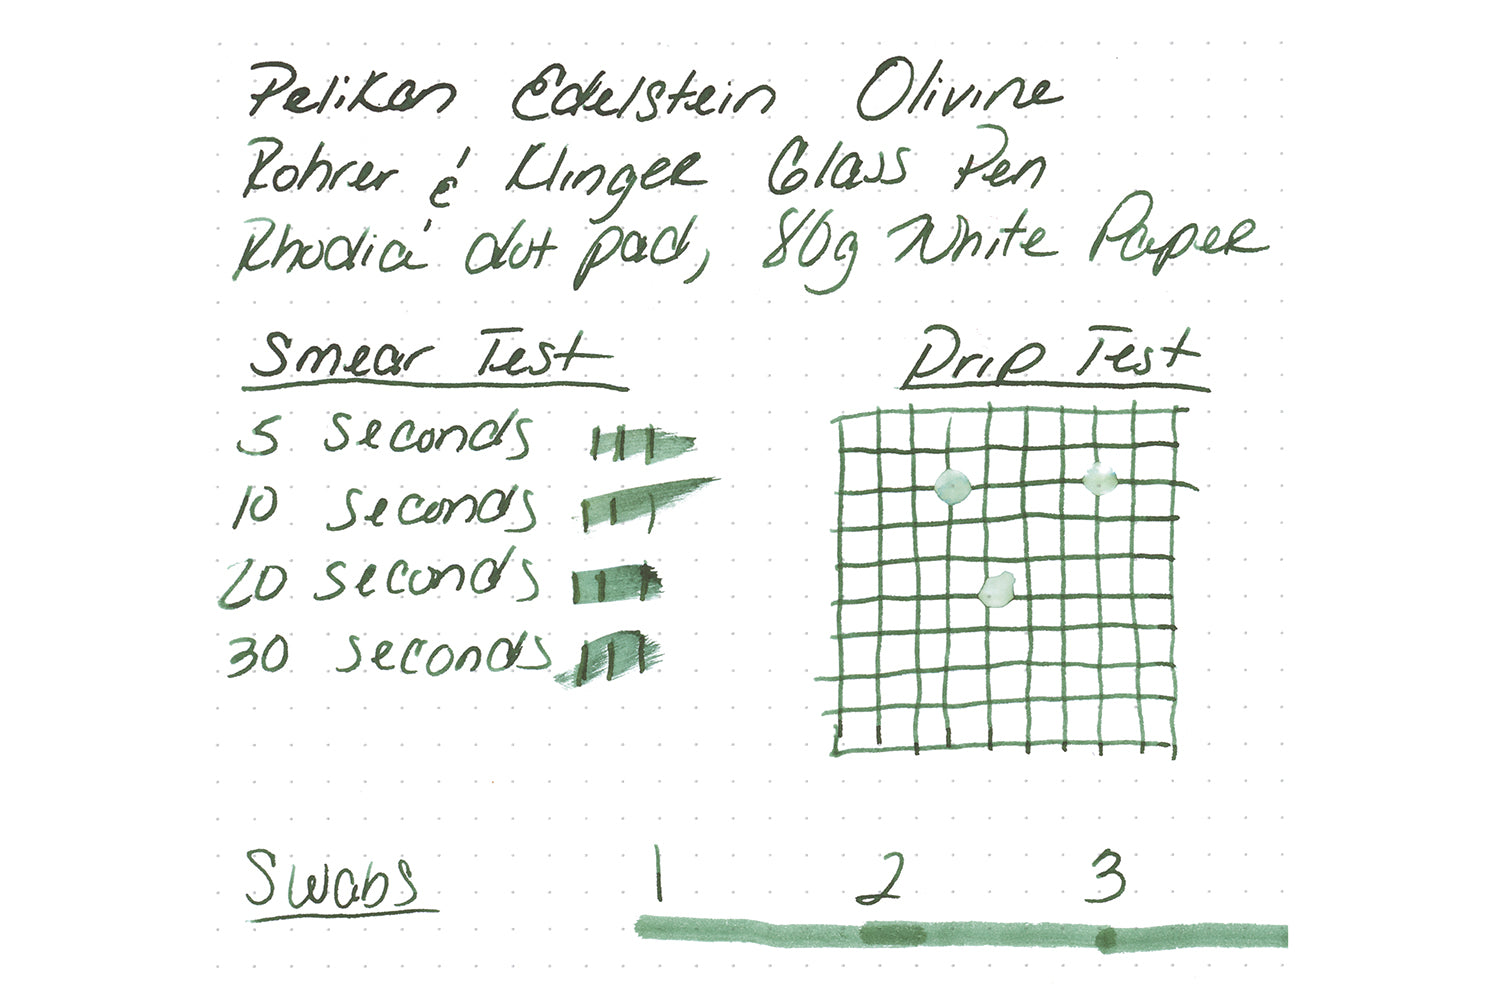 Pelikan Edelstein Olivine
Rohrer & Klinger Glass Pen
Rhodia dot pad, 80g White Paper
Smear Test
Drip Test
5 seconds
10 seconds
20 seconds
30 seconds
Swabs 1 2 3